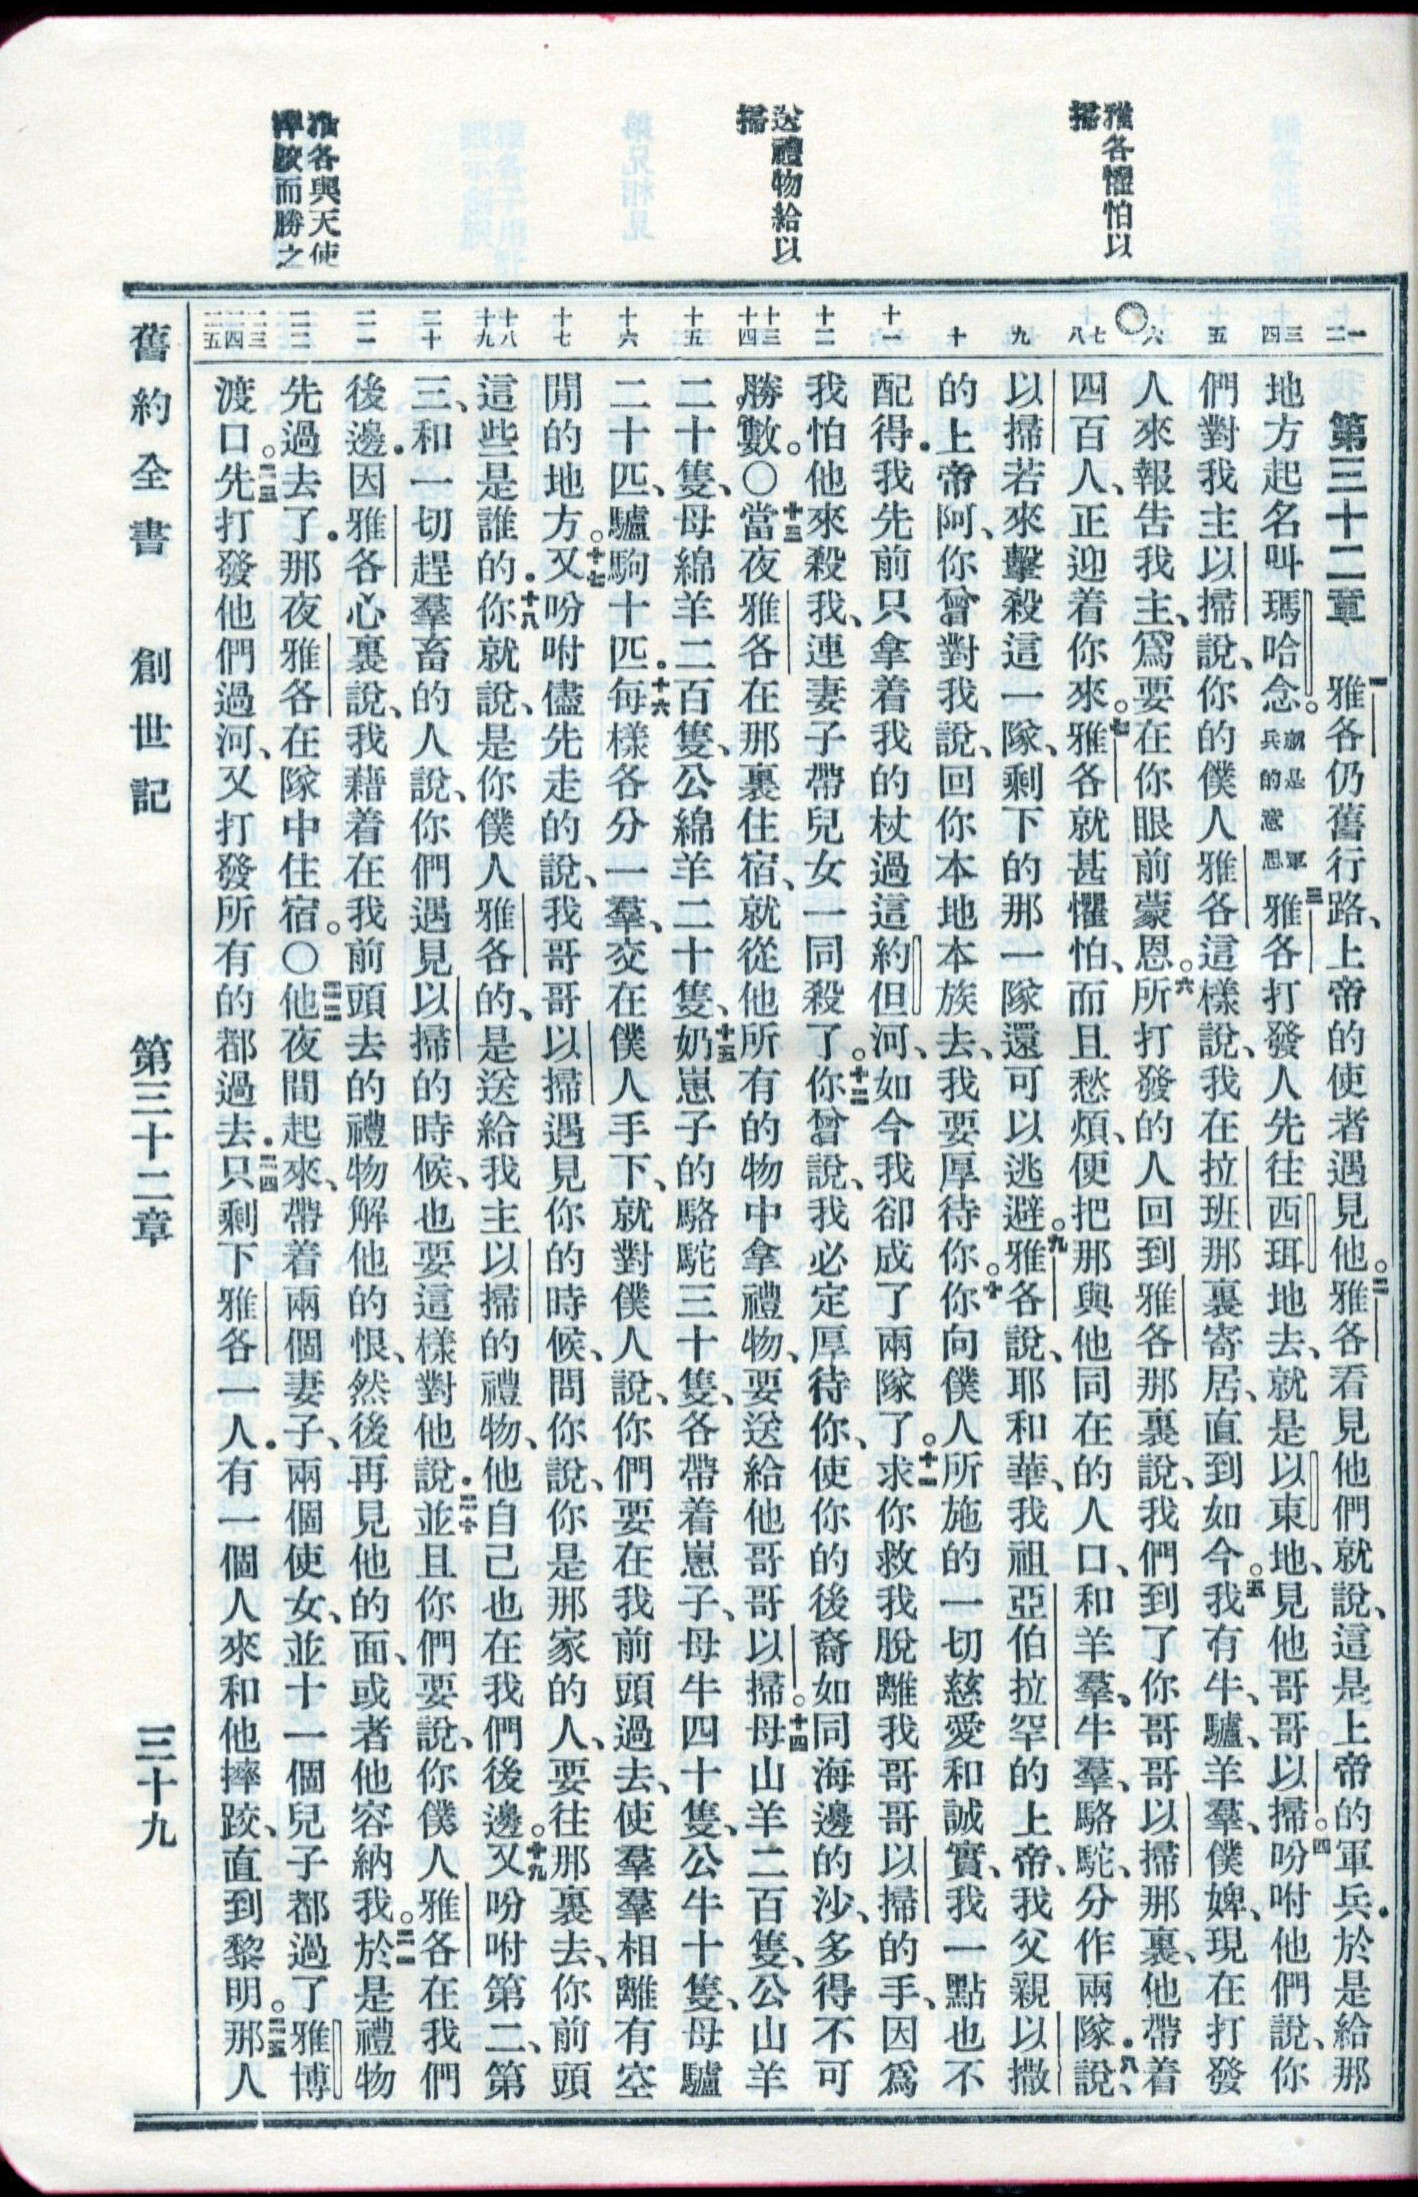 雅各懼怕以
掃
送禮物給以
掃
雅各與天使
摔跤而勝之
第三十二章 一雅各仍舊行路、上帝的使者遇見他。二雅各看見他們就說、這是上帝的軍兵.於是給那
地方起名叫瑪哈念。就是軍兵的意思三雅各打發人先往西珥地去、就是以東地、見他哥哥以掃。四吩咐他們說、你
們對我主以掃說、你的僕人雅各這樣說、我在拉班那裏寄居、直到如今。五我有牛、驢、羊羣、僕婢、現在打發
人來報告我主、爲要在你眼前蒙恩。六所打發的人回到雅各那裏說、我們到了你哥哥以掃那裏、他帶着
四百人、正迎着你來。七雅各就甚懼怕、而且愁煩、便把那與他同在的人口、和羊羣、牛羣、駱駝、分作兩隊.八說、
以掃若來擊殺這一隊、剩下的那一隊還可以逃避。九雅各說、耶和華、我祖亞伯拉罕的上帝、我父親以撒
的上帝阿、你曾對我說、回你本地本族去、我要厚待你。十你向僕人所施的一切慈愛和誠實、我一點也不
配得.我先前只拿着我的杖過這約但河、如今我卻成了兩隊了。十一求你救我脫離我哥哥以掃的手、因爲
我怕他來殺我、連妻子帶兒女一同殺了。十二你曾說、我必定厚待你、使你的後裔如同海邊的沙、多得不可
勝數。○十三當夜雅各在那裏住宿、就從他所有的物中拿禮物、要送給他哥哥以掃。十四母山羊二百隻、公山羊
二十隻、母綿羊二百隻、公綿羊二十隻、十五奶崽子的駱駝三十隻、各帶着崽子、母牛四十隻、公牛十隻、母驢
二十匹、驢駒十匹.十六每樣各分一羣、交在僕人手下、就對僕人說、你們要在我前頭過去、使羣羣相離有空
閒的地方。十七又吩咐儘先走的說、我哥哥以掃遇見你的時候、問你說、你是那家的人、要往那裏去、你前頭
這些是誰的.十八你就說、是你僕人雅各的、是送給我主以掃的禮物、他自己也在我們後邊。十九又吩咐第二、第
三、和一切趕羣畜的人說、你們遇見以掃的時候、也要這樣對他說.二十並且你們要說、你僕人雅各在我們
後邊.因雅各心裏說、我藉着在我前頭去的禮物解他的恨、然後再見他的面、或者他容納我。二一於是禮物
先過去了.那夜雅各在隊中住宿。○二二他夜間起來、帶着兩個妻子、兩個使女、並十一個兒子都過了雅博
渡口。二三先打發他們過河、又打發所有的都過去.二四只剩下雅各一人.有一個人來和他摔跤、直到黎明。二五那人
舊約全書 創世記 第三十二章 三十九